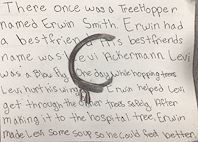 There once was a TreeHopper
named Erwin Smith. Erwin had
a bestfriend his bestfriends
name was Levi Ackermann. Levi
was a Blow fly One day while hopping trees
Levi hurt his Erwin helped Levi
get through the trees safely. After
making it to the hospital tree, Erwin
made Levi some soup so he could feel better